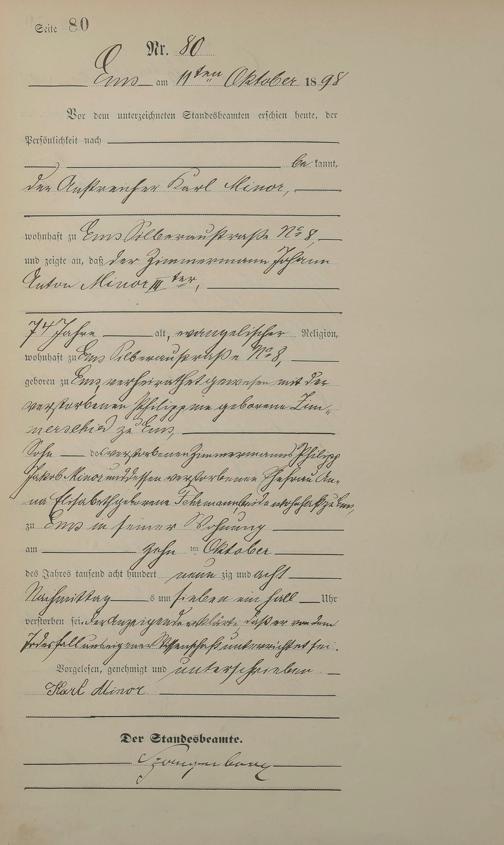 Seite 80
Nr. 80
Ems am 11ten Oktober 1898
Vor dem unterzeichneten Standesbeamten erschien heute, der
Persönlichkeit nach
be kannt,
der Anstreicher Karl Minor,
wohnhaft zu Ems Silberaustraße No 8,
und zeigte an, daß der Zimmermann Johann
Anton Minor III ter,
74 Jahre alt, evangelischer Religion,
wohnhaft zu Ems Silberaustraße No 8,
geboren zu Ems verheirathet gewesen mit der
verstorbenen Philippine geborene Zim-
merschied zu Ems,
Sohn des verstorbenen Zimmermanns Philipp
Jakob Minor und dessen verstorbener Ehefrau An-
na Elisabeth geborene beide wohnhaft zu Ems,
zu Ems in seiner Wohnung
am zehn ten Oktober
des Jahres tausend acht hundert neun zig und acht
Nachmittags um sieben ein halb Uhr
verstorben sei. Der Anzeigende erklärte, daß er von dem
Todesfall aus eigener Wissenschaft unterrichtet sei.
Vorgelesen, genehmigt und unterschrieben
Karl Minor
Der Standesbeamte.
Spangenberg